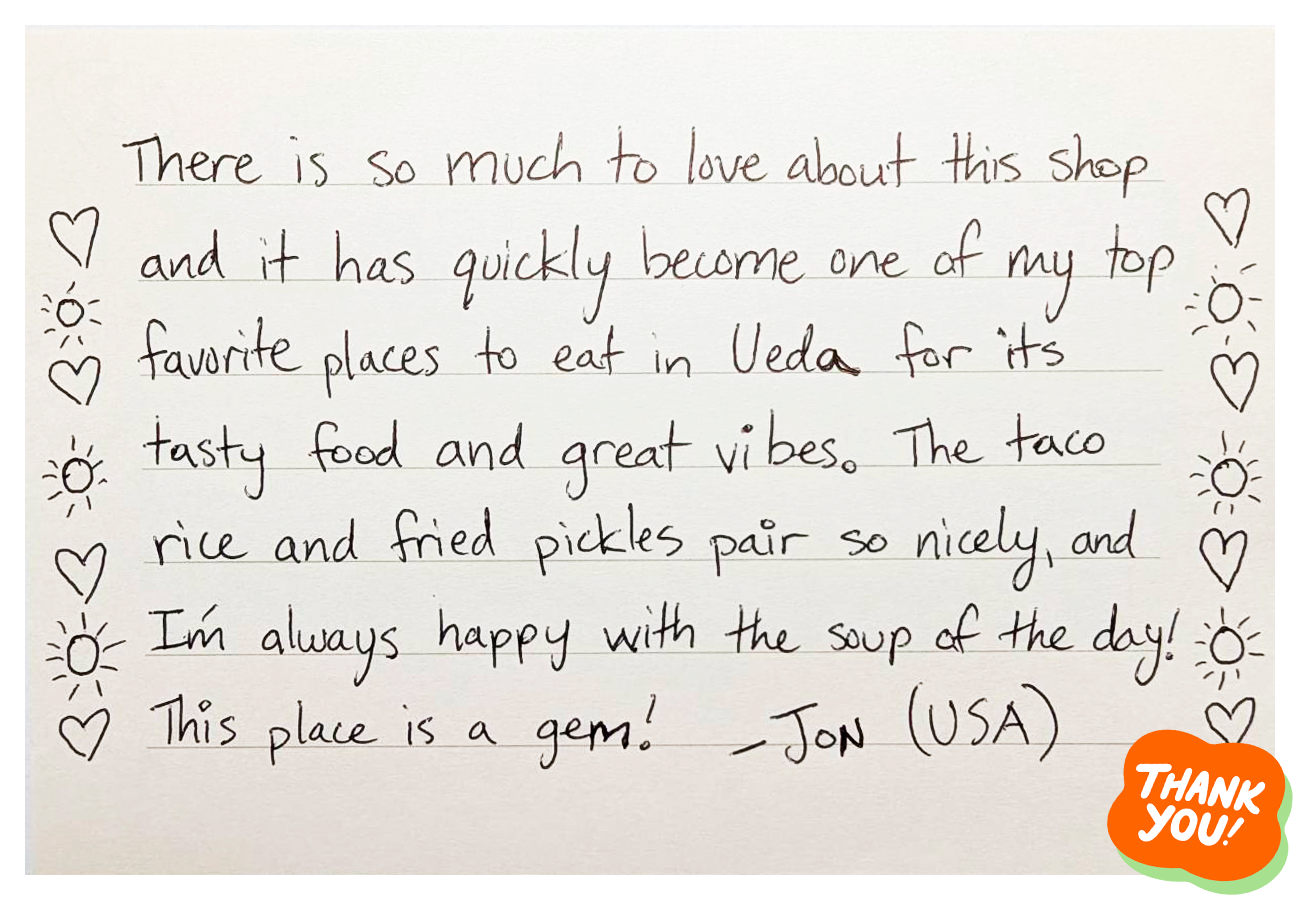 There is so much to love about this shop
and it has quickly become one of my top
favorite places to eat in Ueda for its
tasty food and great vibes. The taco
rice and fried pickles pair so nicely, and
I'm always happy with the soup of the day!
This place is a gem! – JON (USA)
THANK
YOU!